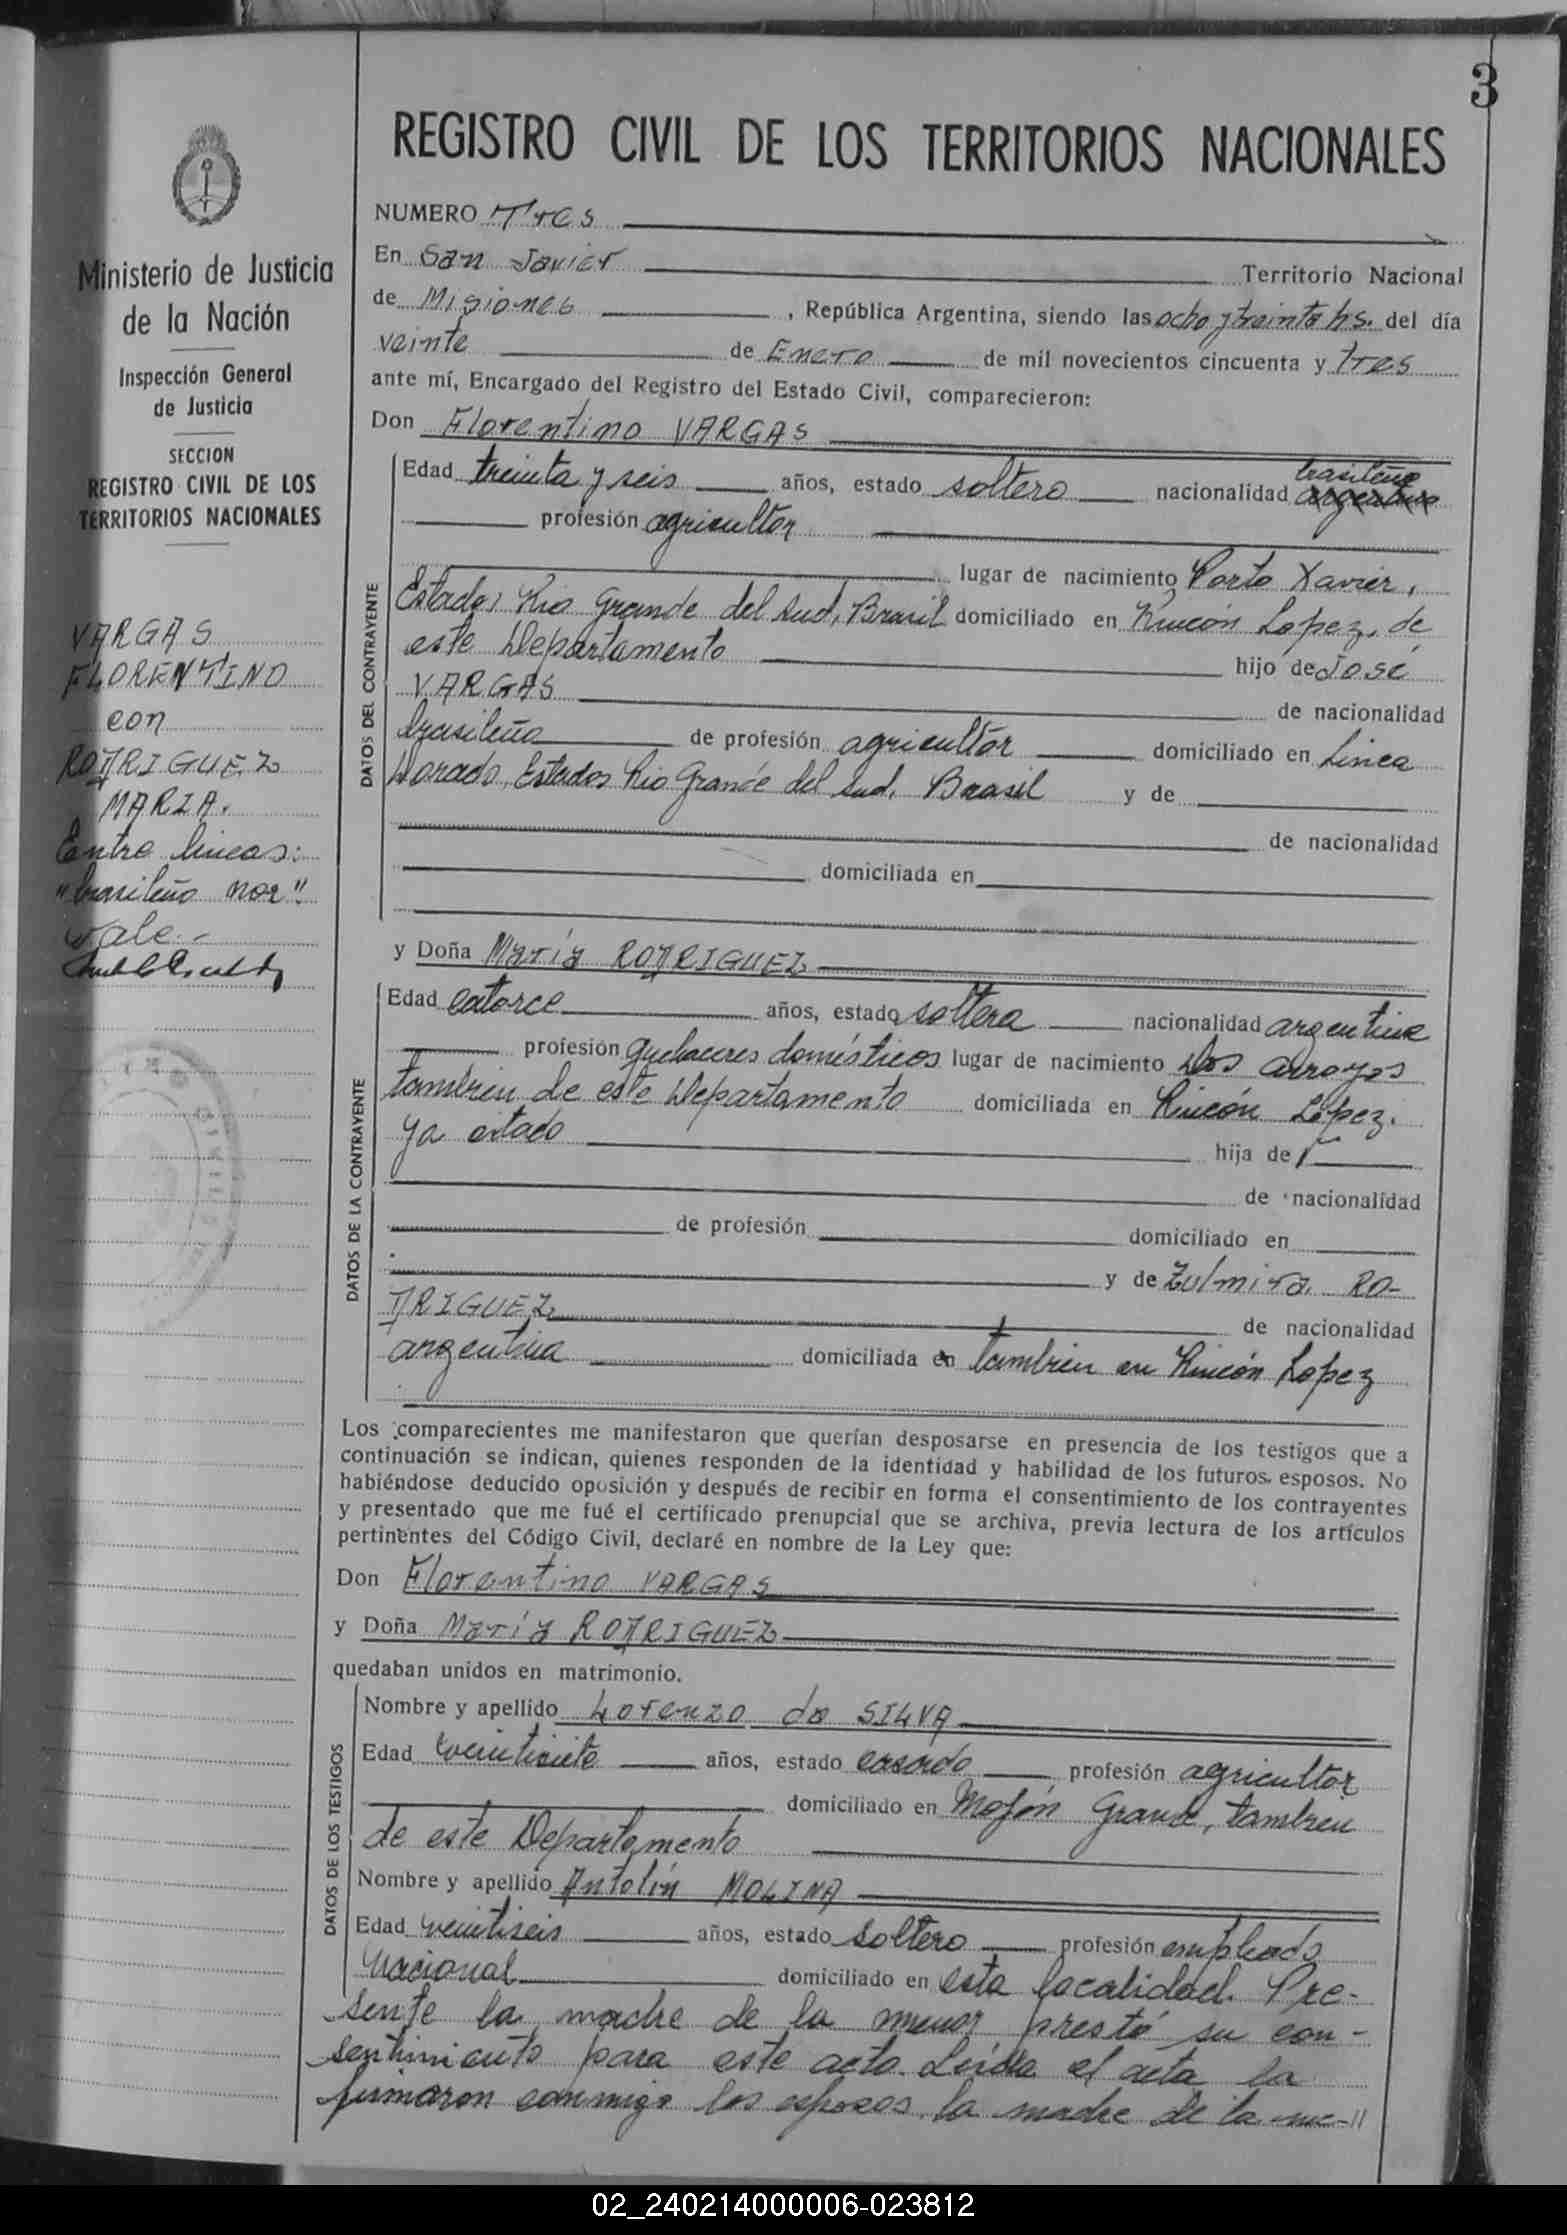 3
REGISTRO CIVIL DE LOS TERRITORIOS NACIONALES
Ministerio de Justicia
de la Nación
Inspección General
de Justicia
SECCION
REGISTRO CIVIL DE LOS
TERRITORIOS NACIONALES
VARGAS
FLORENTINO
con
RODRIGUEZ
MARIA.
Entre lineas:
"brasileño nor".
Vale.-
NUMERO Tres
En San Javier Territorio Nacional
de Misiones, República Argentina, siendo las ocho y treinta hs. del día
veinte de Enero de mil novecientos cincuenta y tres
ante mí, Encargado del Registro del Estado Civil, comparecieron:
Don Florentino VARGAS
DATOS DEL CONTRAYENTE
brasileño
Edad treinta y seis años, estado soltero nacionalidad argentino
profesión agricultor
lugar de nacimiento Porto Xavier,
Estados Rio Grande del Sud, Brasil domiciliado en Rincón Lopez, de
este Departamento hijo de José
VARGAS de nacionalidad
brasileña de profesión agricultor domiciliado en Linea
Dorado, Estados Rio Grande del Sud, Brasil y de
de nacionalidad
domiciliada en
y Doña María RODRIGUEZ
DATOS DE LA CONTRAYENTE
Edad catorce años, estado soltera nacionalidad argentina
profesión quehaceres domésticos lugar de nacimiento Dos Arroyos
tambien de este Departamento domiciliada en Rincón López.
ya citado hija de
de nacionalidad
de profesión domiciliado en
y de Zulmira RO-
DRIGUEZ de nacionalidad
argentina domiciliada en tambien en Rincón Lopez
Los comparecientes me manifestaron que querían desposarse en presencia de los testigos que a
continuación se indican, quienes responden de la identidad y habilidad de los futuros esposos. No
habiéndose deducido oposición y después de recibir en forma el consentimiento de los contrayentes
y presentado que me fué el certificado prenupcial que se archiva, previa lectura de los artículos
pertinentes del Código Civil, declaré en nombre de la Ley que:
Don Florentino VARGAS
y Doña María RODRIGUEZ
quedaban unidos en matrimonio.
DATOS DE LOS TESTIGOS
Nombre y apellido Lorenzo da SILVA
Edad veintisiete años, estado casado profesión agricultor
domiciliado en Mojón Grande, tambien
de este Departamento
Nombre y apellido Antolín MOLINA
Edad veintiseis años, estado soltero profesión empleado
nacional domiciliado en esta localidad. Pre-
sente la madre de la menor prestó su con-
sentimiento para este acto. Leída el acta la
firmaron conmigo los esposos, la madre de la me-//
02_240214000006-023812